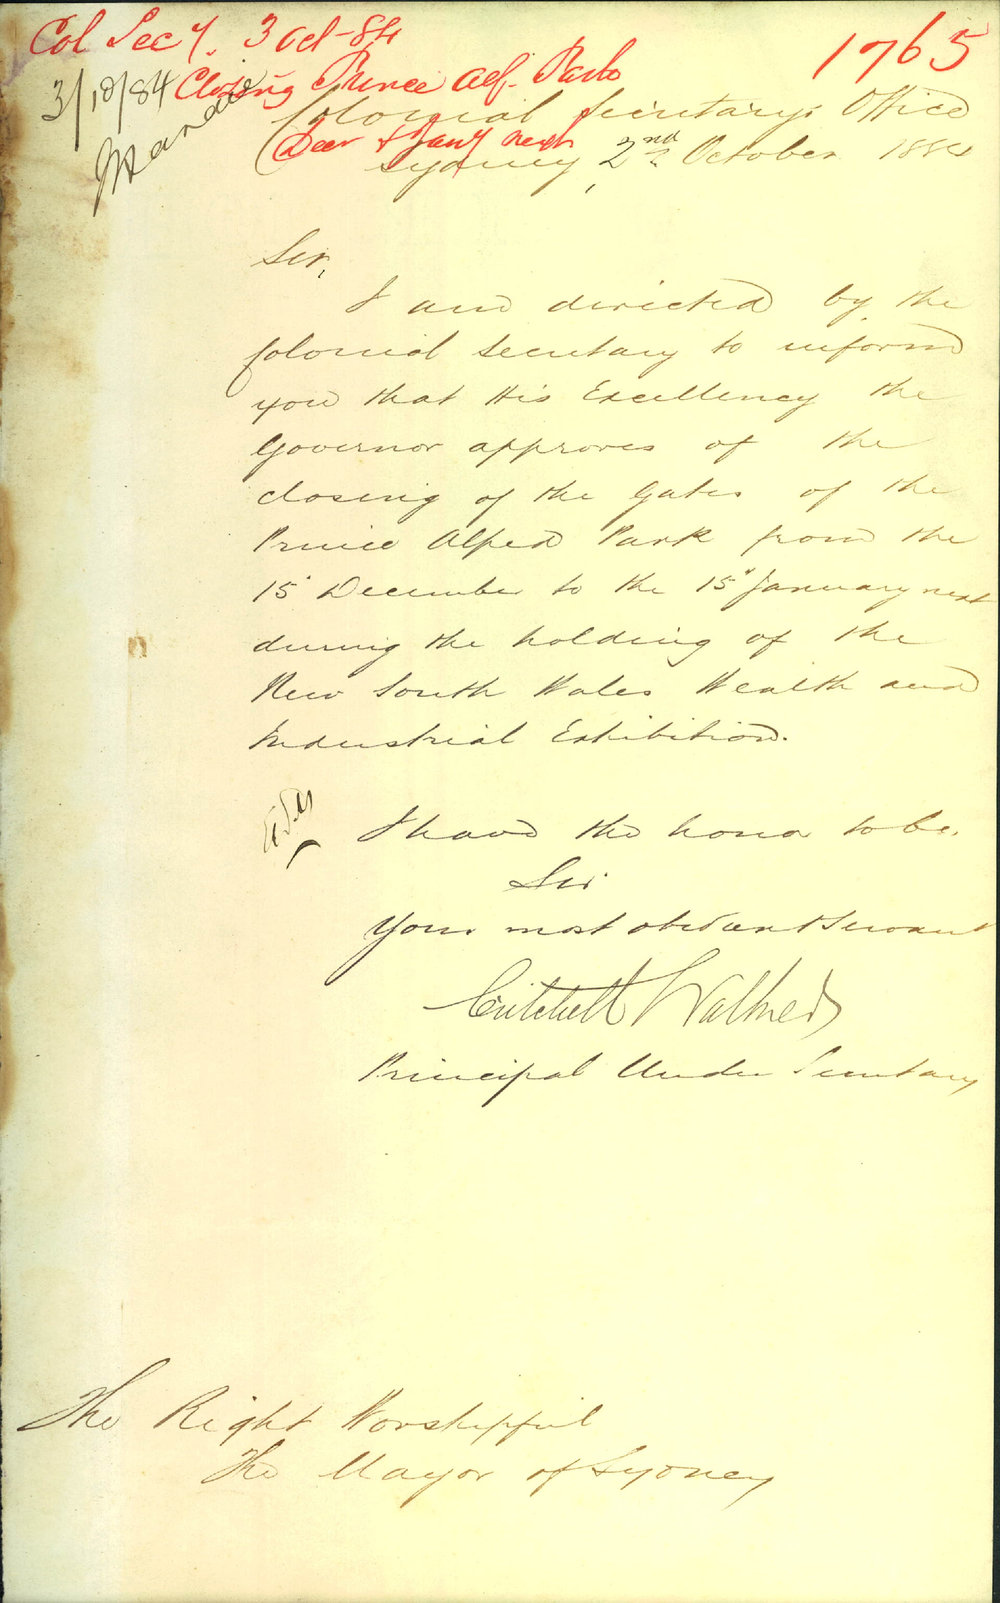 Col Secy. 3 Oct-84
1765
Closing Prince Alf. Park
Decr & Jany next
3/10/84
Colonial Secretary's Office
Sydney, 2nd October 1884
Sir,
I am directed by the
Colonial Secretary to inform
you that His Excellency the
Governor approves of the
closing of the Gates of the
Prince Alfred Park from the
15" December to the 15" January next
during the holding of the
New South Wales Health and
Industrial Exhibition.
I have the honor to be,
Sir
Your most obedient Servant
Critchett Walker
Principal Under Secretary
The Right Worshipful
The Mayor of Sydney